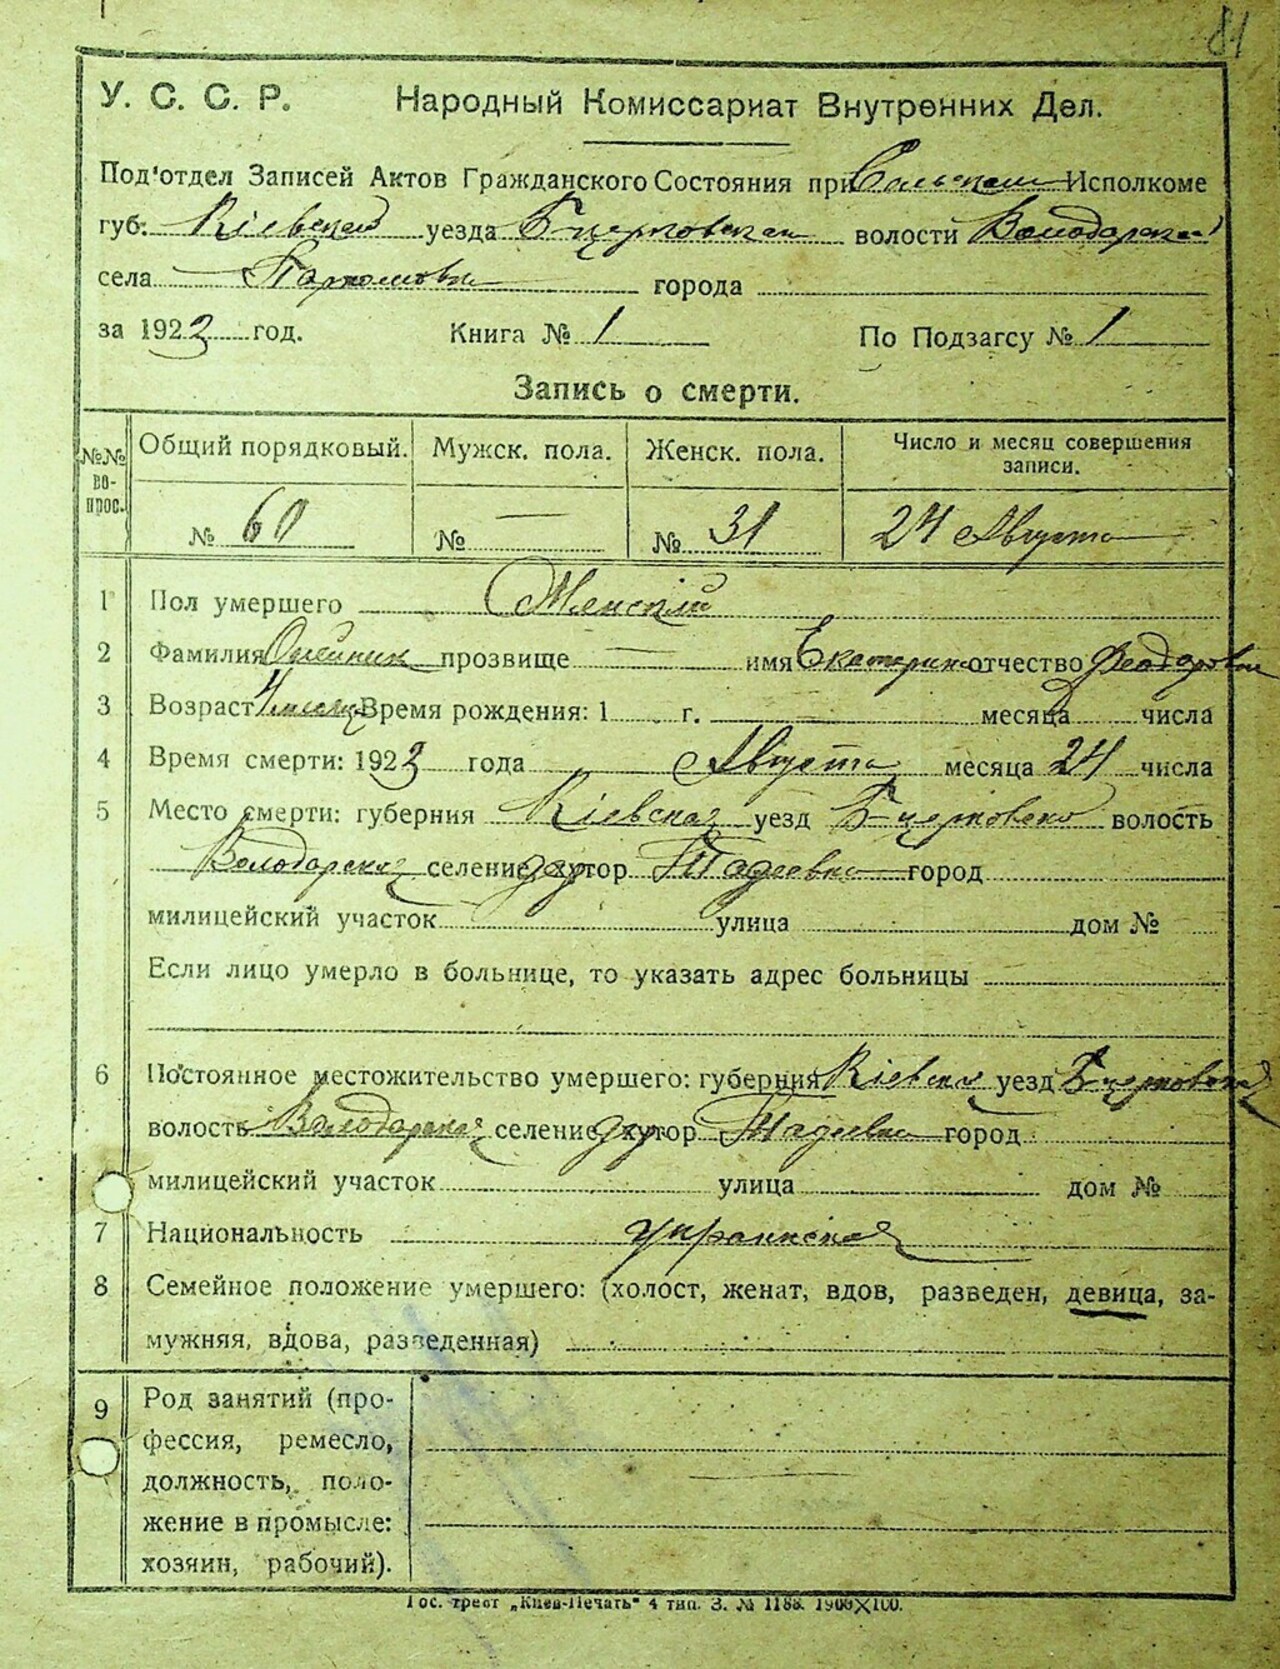 81
У. С. С. Р. Народный Комиссариат Внутренних Дел.
Под'отдел Записей Актов Гражданского Состояния при Сельском Исполкоме
губ. Кіевской уезда Б-церковская волости Володарской
села Пархомовка города
за 1923 год. Книга № 1 По Подзагсу № 1
Запись о смерти.
№№ во-прос. Общий порядковый. Мужск. пола. Женск. пола. Число и месяц совершения записи.
№ 60 № — № 31 24 Августа
1 Пол умершего Женский
2 Фамилия Олейник прозвище — имя Екатерина отчество Феодоровна
3 Возраст 4 месяц Время рождения: 1 г. месяца числа
4 Время смерти: 1923 года Августа месяца 24 числа
5 Место смерти: губерния Кіевская уезд Б-церковско волость
Володарская селение дер хутор Тадеевка город
милицейский участок улица дом №
Если лицо умерло в больнице, то указать адрес больницы
6 Постоянное местожительство умершего: губерния Кіевская уезд Б-церковская
волость Володарская селение дер хутор Тадеевка город
милицейский участок улица дом №
7 Национальность украинская
8 Семейное положение умершего: (холост, женат, вдов, разведен, девица, за-
мужняя, вдова, разведенная)
9 Род занятий (про-
фессия, ремесло,
должность, поло-
жение в промысле:
хозяин, рабочий).
Гос. трест „Киев-Печать" 4 тип. З. № 1188. 1900×100.